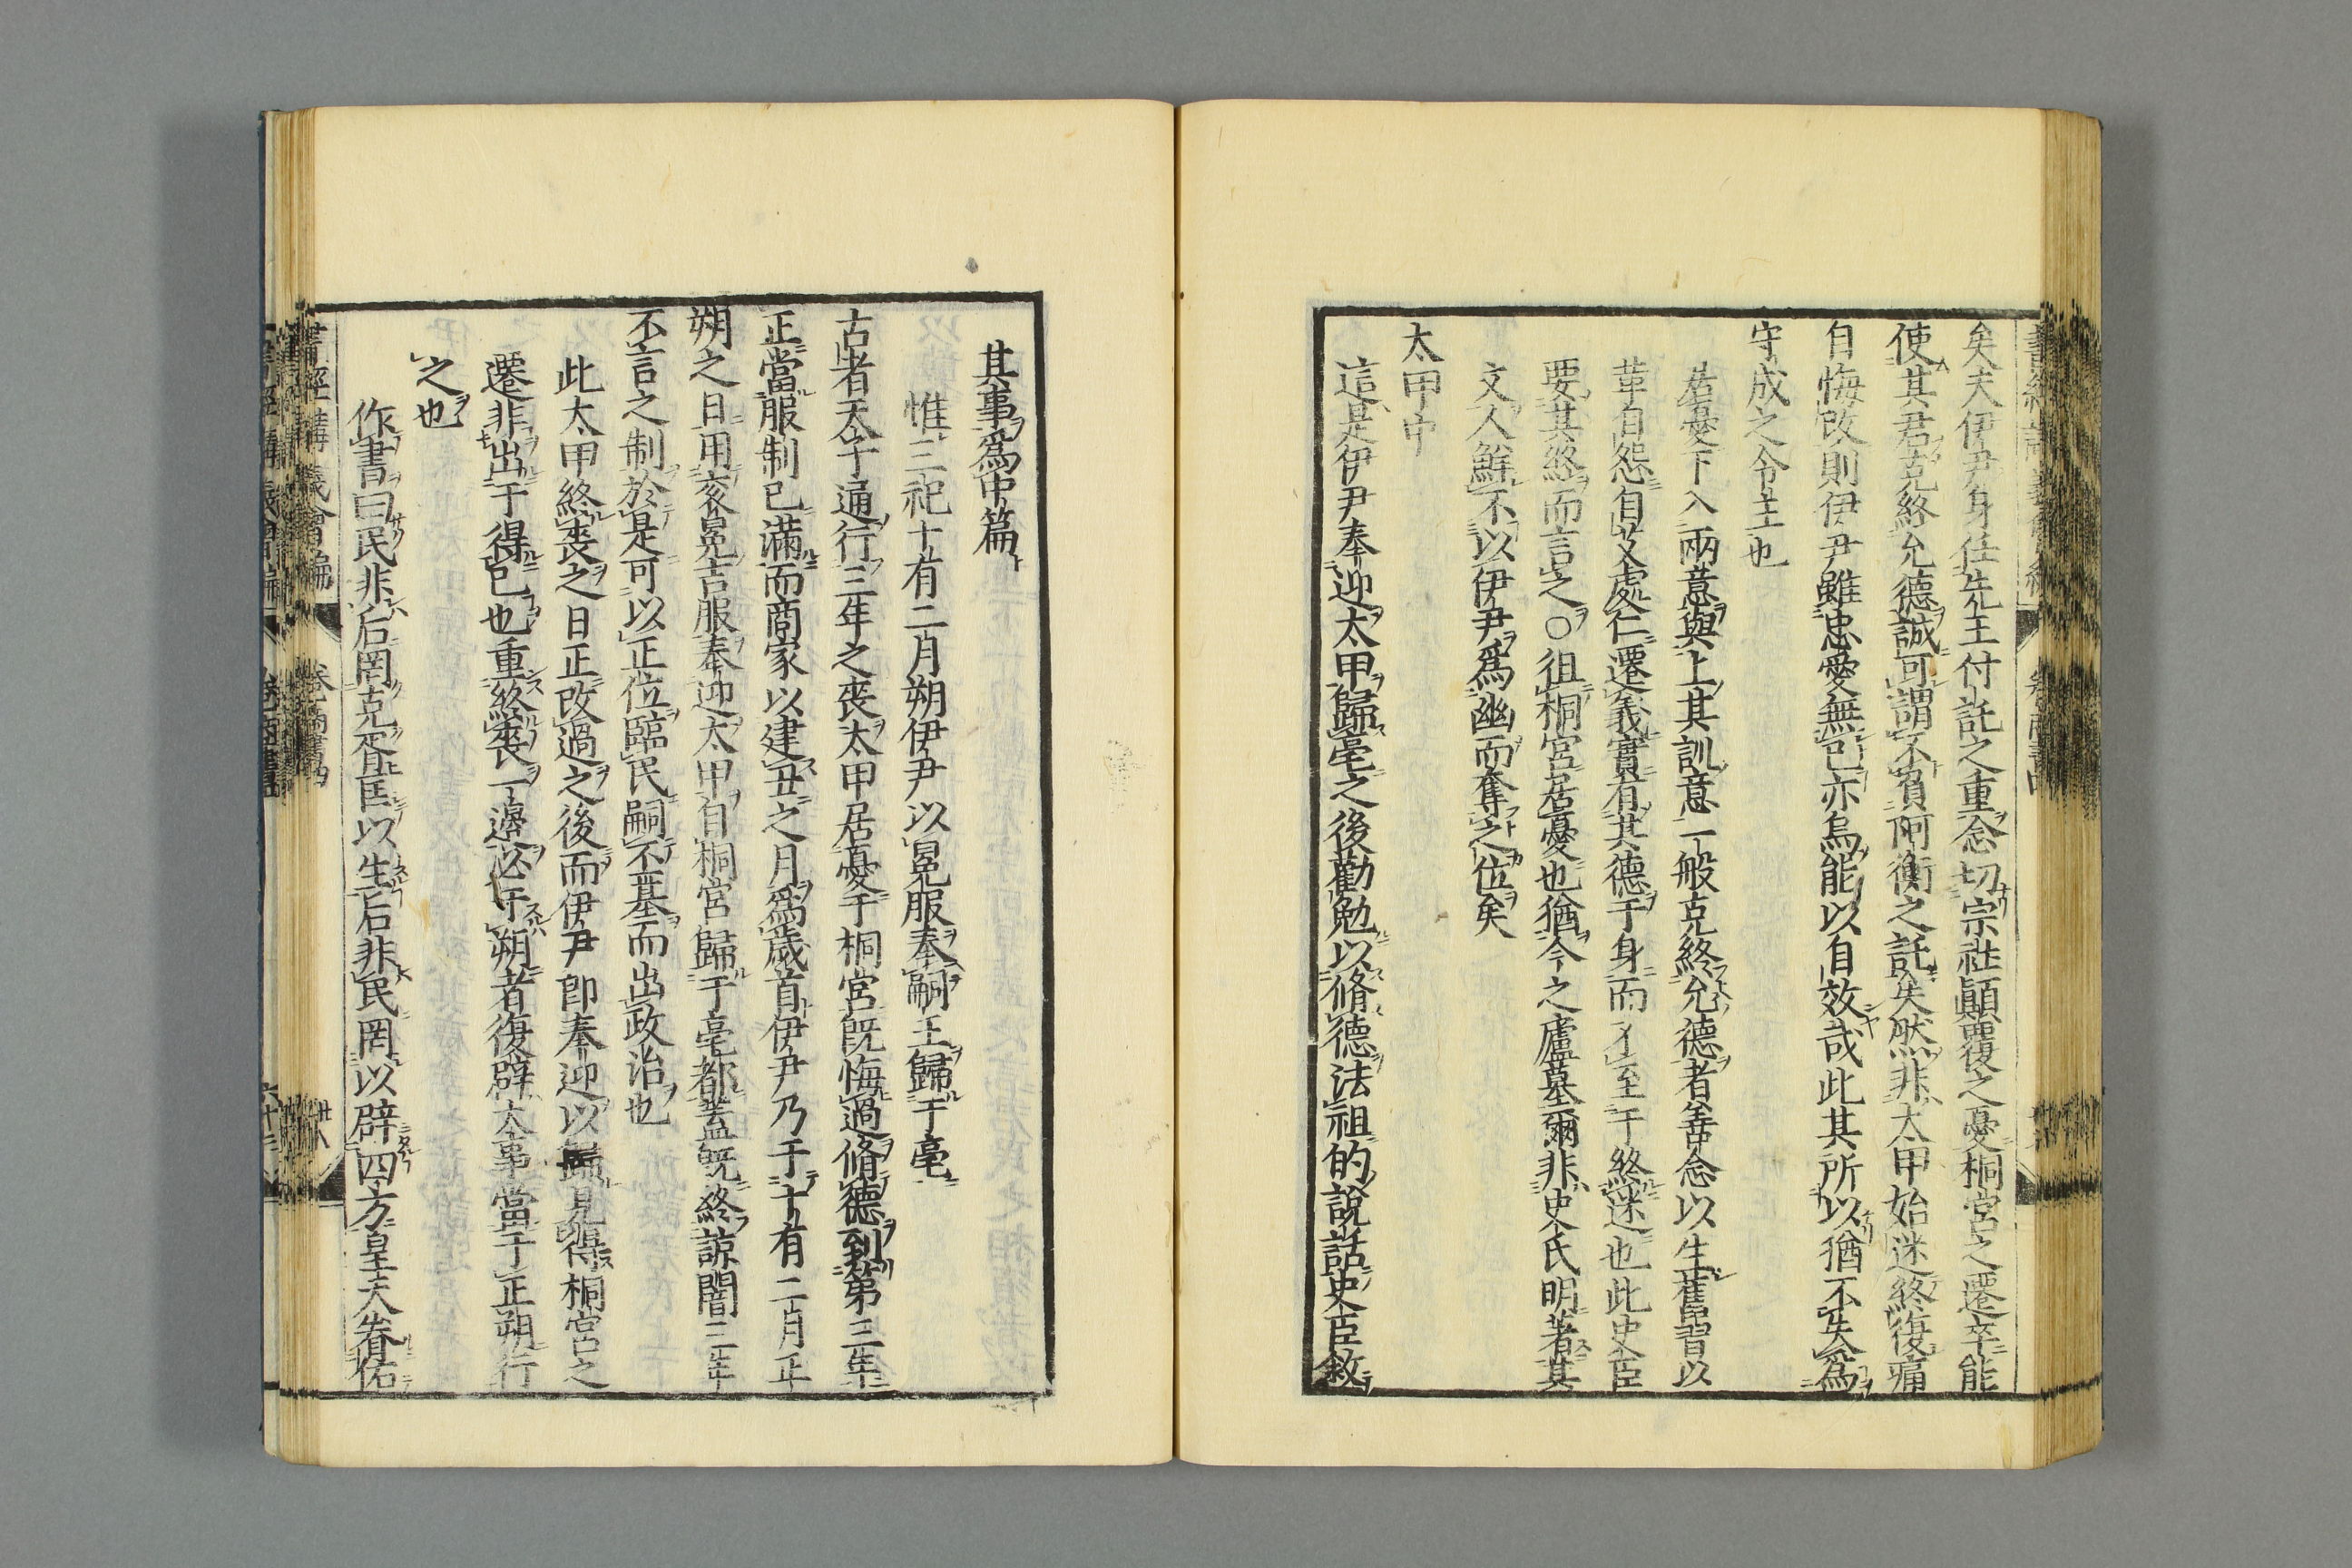 矣夫伊尹身任先王付託之重念切宗社顛覆之憂桐宮之遷卒能
使其君克終允德誠可謂不負阿衡之託矣然非太甲始迷終復痛
自悔改則伊尹雖忠愛無已亦烏能以自效哉此其所以猶不失為
守成之令主也
居憂下入兩意與上其訓意一般克終允德者善念以生舊習以
革自怨自艾處仁遷義實有其德于身而不至于終迷也此史臣
要其終而言之○徂桐宮居憂也猶今之廬墓爾非史氏明著其
文人鮮不以伊尹爲幽而奪之位矣
太甲中
這是伊尹奉迎太甲歸亳之後勸勉以脩德法祖的說話史臣敘
其事爲中篇
惟三祀十有二月朔伊尹以冕服奉嗣王歸于亳
古者天子通行三年之喪太甲居憂于桐宮旣悔過脩德到第三年
正當服制已滿而商家以建丑之月爲歲首伊尹乃于十有二月正
朔之日用袞冕吉服奉迎太甲自桐宮歸于亳都蓋旣終諒闇三年
不言之制於是可以正位臨民嗣丕基而出政治也
此太甲終喪之日正改過之後而伊尹卽奉迎以歸見得桐宮之
遷非出于得已也重終喪一邊必于朔者復辟大事當于正朔行
之也
作書曰民非后罔克胥匡以生后非民罔以辟四方皇天眷佑
書經講義會編
卷 商書四
廿八